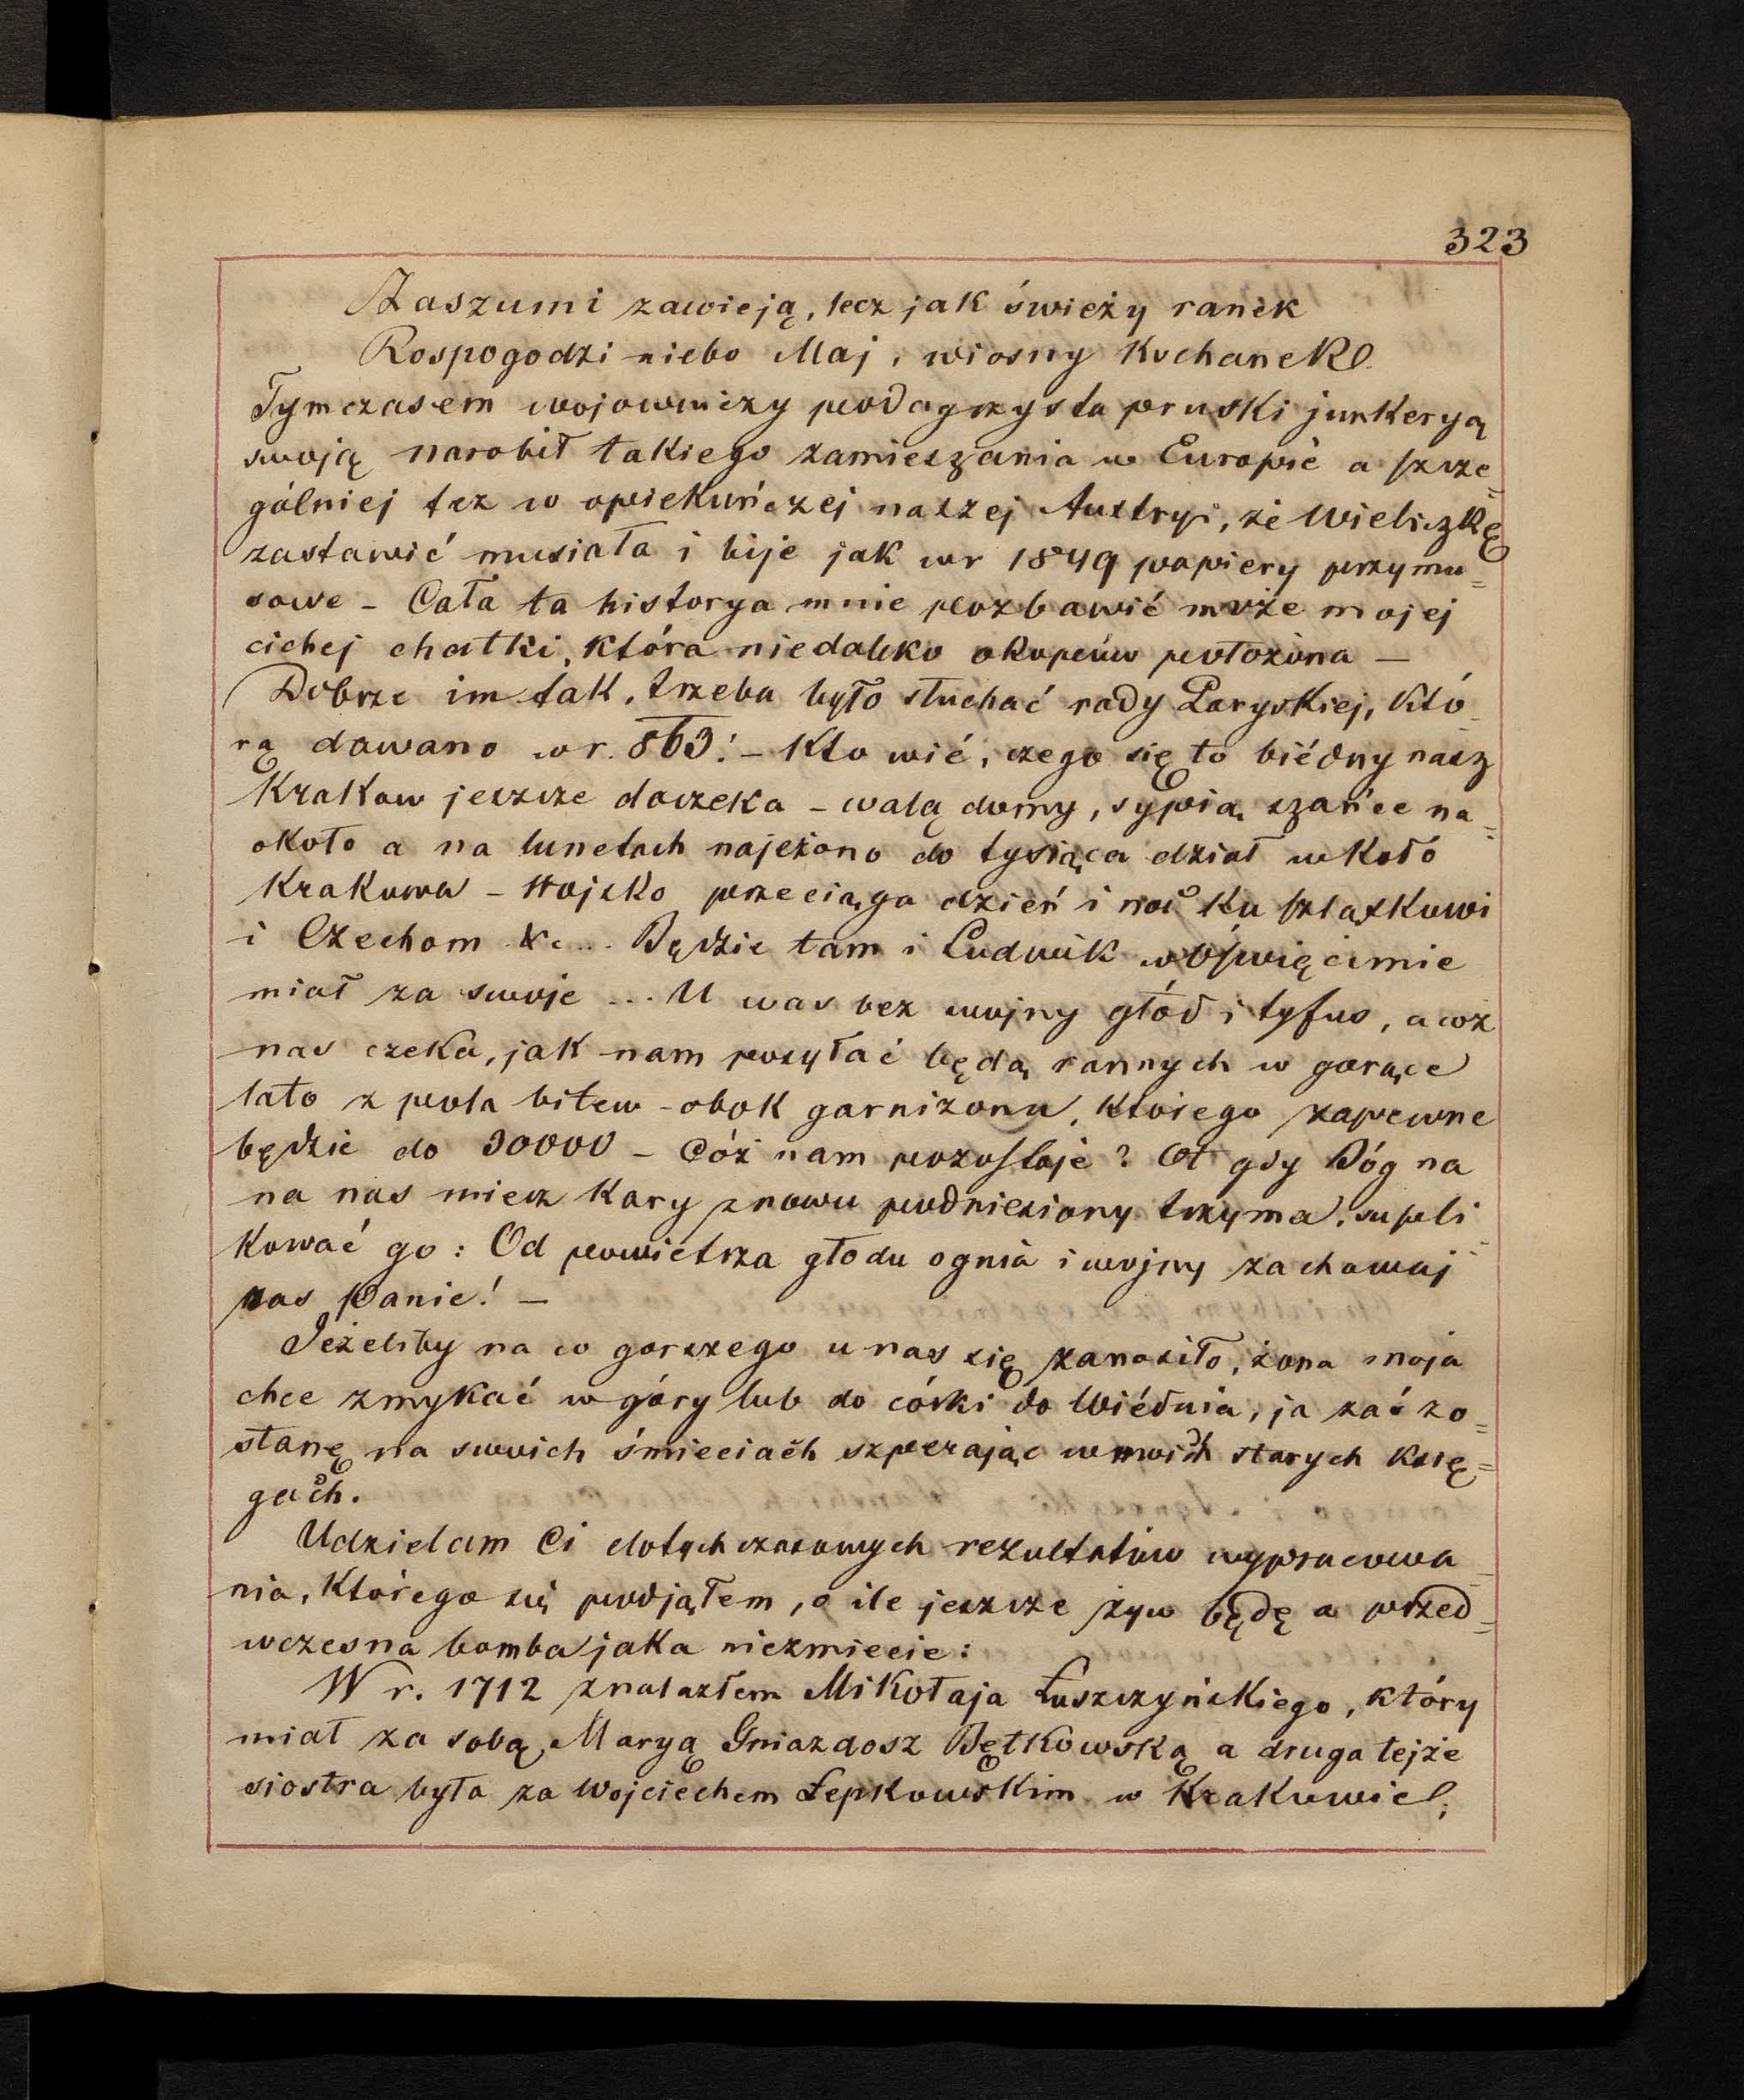 323
Zaszumi zawieją, lecz jak świeży ranek
Rospogodzi niebo Maj, wiosny kochanek
Tymczasem wojowniczy podagrzysta pruski junkeryą
swoją narobił takiego zamieszania w Europie a szcze=
gólniej też w opiekuńczej naszej Austryi, że Wieliczkę
zastawić musiała i bije jak w r 1849 papiery przymu=
sowe – Cała ta historya mnie pozbawić może mojej
cichej chatki, która niedaleko okopów położona –
Dobrze im tak, trzeba było słuchać rady Paryskiej, któ
rą dawano w r. 863! – Kto wié, czego się to biédny nasz
Krakow jeszcze doczeka – walą domy, sypią szańce na=
około a na lunetach najeżono do tysiąca dział wkoło
Krakowa – Wojsko przeciąga dzień i noc ku Szląskowi
i Czechom &c... Będzie tam i Ludwik w Oświęcimie
miał za swoje ... U was bez wojny głód i tyfus, a coż
nas czeka, jak nam posyłać będą rannych w gorące
lato z pola bitew – obok garnizonu, którego zapewne
będzie do 30000 – Cóż nam pozostaje? Ot gdy Bóg na
na nas miecz kary znowu podniesiony trzyma, supli=
kować go: Od powietrza głodu ognia i wojny zachowaj
nas Panie! –
Jeżeliby na co gorszego u nas się zanosiło, żona moja
chce zmykać w góry lub do córki do Wiédnia, ja zaś zo=
stanę na swoich śmieciach szperając w mwich starych księ=
gach.
Udzielam Ci dotychczasowych rezultatów wypracowa
nia, którego się podjąłem, o ile jeszcze żyw będę a przed=
wczesna bomba jaka niezmiecie:
W r. 1712 znalazłem Mikołaja Łuszczyńskiego, który
miał za sobą Maryą Gniazdosz Bętkowską a druga tejże
siostra była za Wojciechem Łepkowskim w Krakowie;